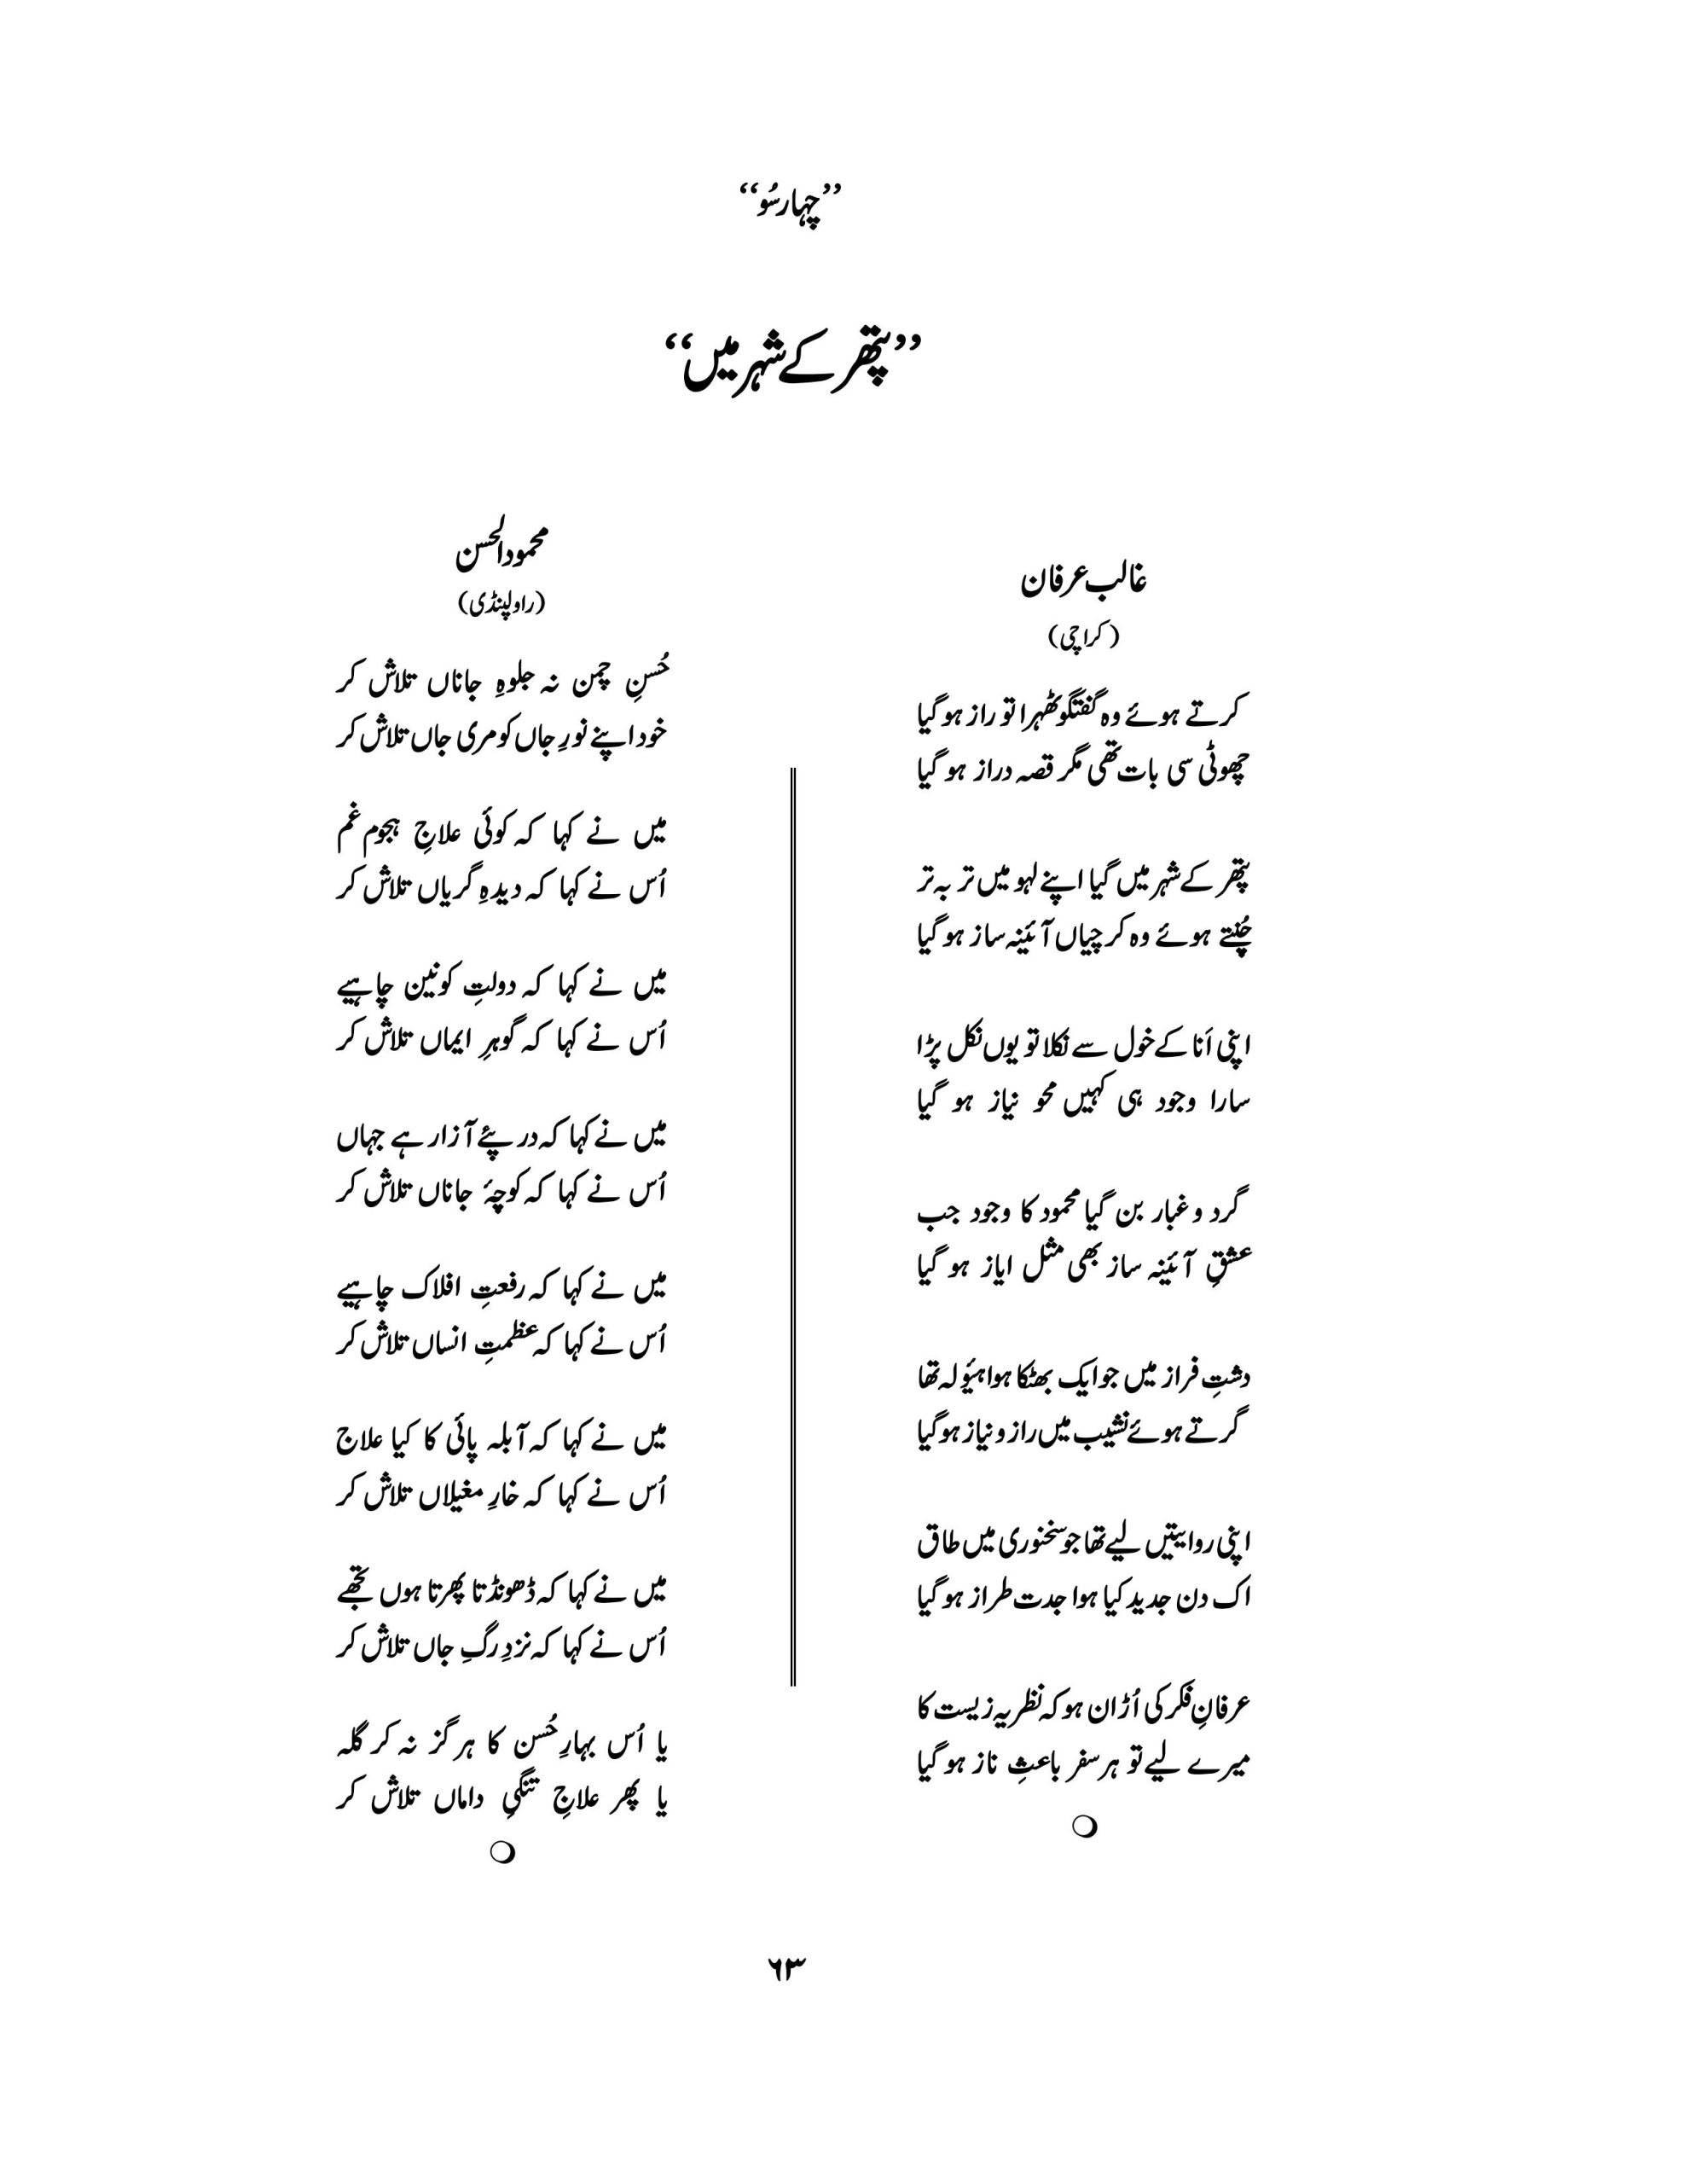 ”چہارسُو“
”پتھر کے شہر میں“
غالب عرفان
(کراچی)
کرتے ہوئے وہ گفتگو ٹھہرا تو راز ہو گیا
چھوٹی سی بات تھی مگر قصہ دراز ہو گیا
پتھر کے شہر میں گیا اپنے لہو میں تر بہ تر
چُنتے ہوئے وہ کرچیاں آئینہ ساز ہو گیا
اپنی اَنا کے خول سے نکلا تو یوں نکل پڑا
سارا وجود ہی کہیں محو نیاز ہو گیا
گرد و غبار بن گیا محمود کا وجود جب
عشقِ آئینہ ساز بھی مثل ایاز ہو گیا
دشتِ فراز میں جو ایک بھٹکا ہوا ہیُولہ تھا
گرتے ہوئے نشیب میں راز و نیاز ہو گیا
اپنی روایتیں لیے تھا جو سخنوری میں طاق
اک دن جدید کیا ہوا جدت طراز ہو گیا
عرفانِ فکر کی اُڑان ہو کہ نظریہ زیست کا
میرے لیے تو ہر سفر باعثِ ناز ہو گیا
محمودالحسن
(راولپنڈی)
حُسنِ چمن نہ جلوہِ جاناں تلاش کر
خود اپنے نورِ جاں کو مری جاں تلاش کر
میں نے کہا کہ کوئی علاجِ ہجوم غم
اُس نے کہا کہ دیدہِ گریاں تلاش کر
میں نے کہا کہ دولتِ کونین چاہیے
اُس نے کہا کہ گوہرِ ایماں تلاش کر
میں نے کہا کہ درپئے آزار ہے جہاں
اُس نے کہا کہ کوچۂ جاناں تلاش کر
میں نے کہا کہ رفعتِ افلاک چاہیے
اُس نے کہا کہ عظمتِ انساں تلاش کر
میں نے کہا کہ آبلہ پائی کا کیا علاج
اُس نے کہا کہ خارِ مغیلاں تلاش کر
میں نے کہا کہ ڈھونڈتا پھرتا ہوں تجھے
اُس نے کہا کہ نزدِ رگِ جاں تلاش کر
یا اُس بہارِ حُسن کا ہرگز نہ کر گلہ
یا پھر علاجِ تنگیِ داماں تلاش کر
۶۳